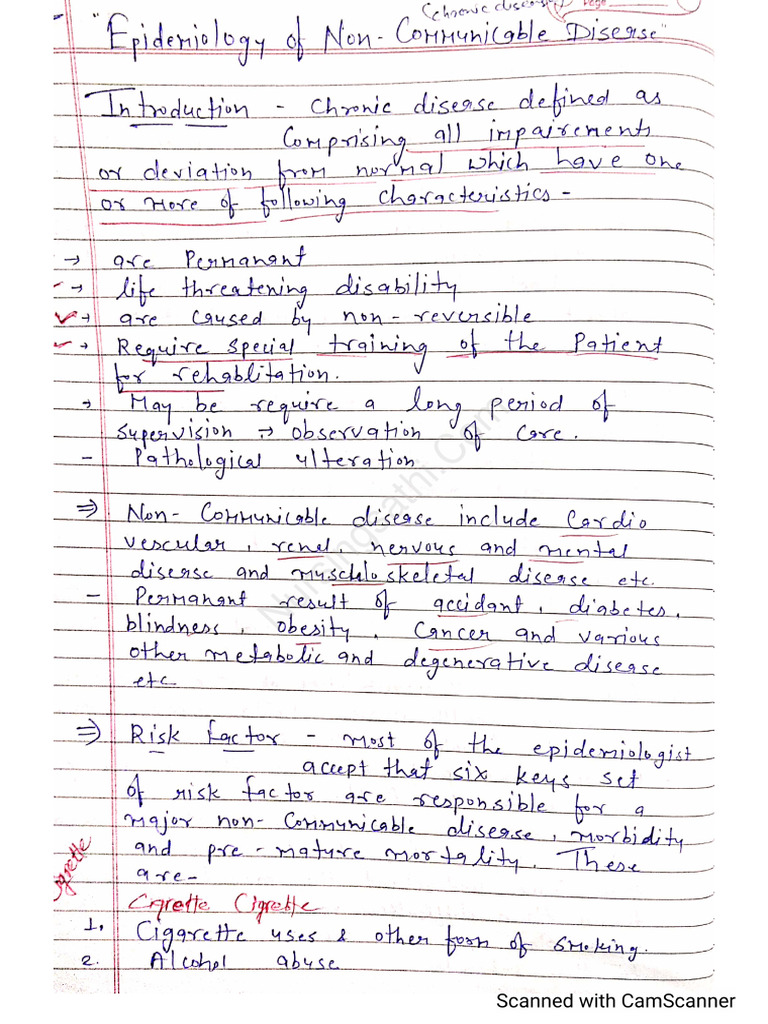 (chronic disease) Page
"Epidemiology of Non-Communicable Disease"
Introduction - Chronic disease defined as
Comprising all impairements
or deviation from normal which have one
or more of following characteristics -
→ are Permanant
→ life threatening disability
→ are caused by non-reversible
→ Require special training of the Patient
for rehablitation.
→ May be require a long period of
supervision → observation of care.
- Pathological ulteration
⇒ Non-Communicable disease include Cardio
vescular, renel, nervous and mental
disease and muschlo skeletal disease etc.
- Permanant result of accidant, diabetes,
blindness, obesity, Cancer and various
other metabolic and degenerative disease
etc
⇒ Risk factor - most of the epidemiologist
accept that six keys set
of risk factor are responsible for a
major non-Communicable disease, morbidity
and pre-mature mortality. These
are-
Cgrette Cigrette
1, Cigarette uses & other form of smoking.
2. Alcohol abuse
NursingSathi.Com
Scanned with CamScanner